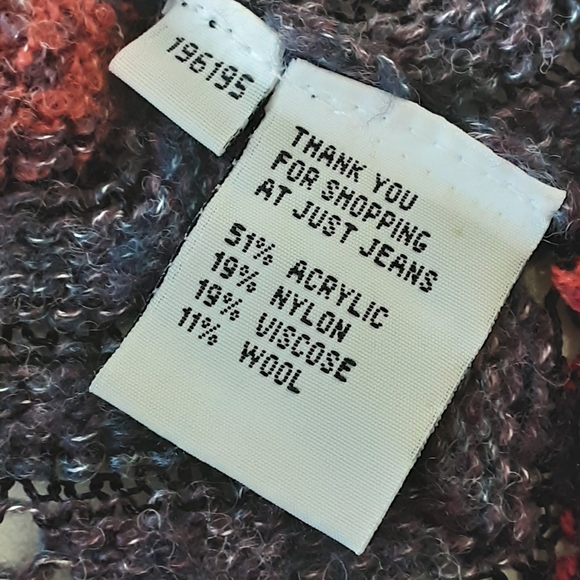 196195
THANK YOU
FOR SHOPPING
AT JUST JEANS
51% ACRYLIC
19% NYLON
19% VISCOSE
11% WOOL